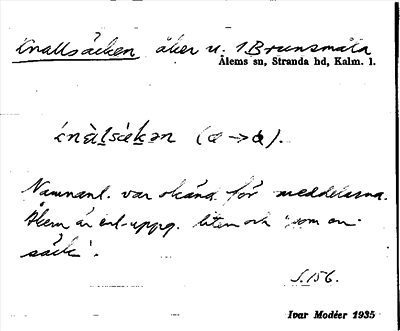 Knallsäcken åker u. 1 Brunsmåla
Ålems sn, Stranda hd, Kalm. l.
knàl̲sàk̲ən (a → ȧ).
Namnanl. var okänd för meddelarna.
Åkern är enl. uppg. liten och "som en
säck".
S. 156.
Ivar Modéer 1935